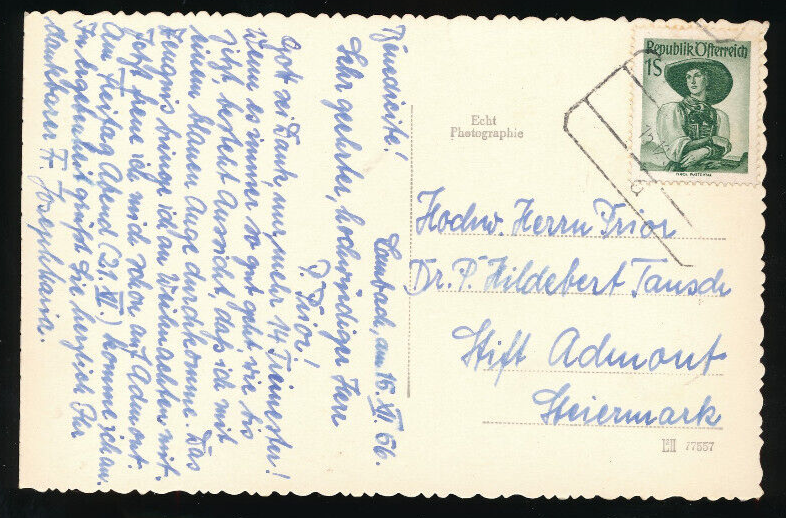 Lambach, am 15. XII. 56.
Sehr geehrter, hochwürdiger Herr
P. Prior!
Gott sei Dank, nur mehr 14 Trimester!
Wenn es immer so gut geht wie bis
jetzt, besteht Aussicht, daß ich mit
einem blauen Auge durchkomme. Das
Zeugnis bringe ich zu Weihnachten mit.
Jetzt freue ich mich schon auf Admont.
Am Freitag Abend (21. XII.) komme ich an.
In Ergebenheit grüßt Sie herzlich Ihr
dankbarer Fr. Josephhain.
Echt
Photographie
Republik Österreich
1S
TIROL PUSTERTAL
Hochw. Herrn Prior
Dr. P. Hildebert Tausch
Stift Admont
Steiermark
77557